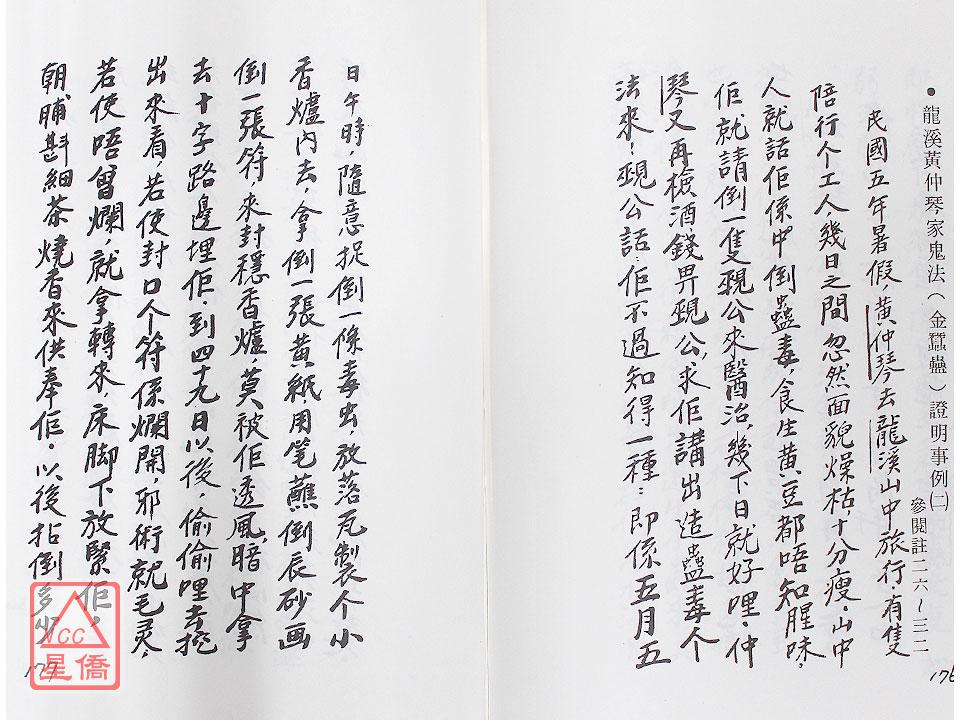 ●龍溪黃仲琴家鬼法（金蠶蠱）證明事例㈡
參閱註二六～三二
民國五年暑假，黃仲琴去龍溪山中旅行．有隻
陪行个工人，幾日之間忽然面貌燥枯，十分瘦．山中
人就話佢係中倒蠱毒，食生黃豆都唔知腥味，
佢就請倒一隻覡公來醫治，幾下日就好哩．仲
琴又再檢酒錢畀覡公，求佢講出造蠱毒个
法來！覡公話：佢不過知得一種：即係五月五
176
日午時，隨意捉倒一條毒虫，放落瓦製个小
香爐內去，拿倒一張黃紙用笔蘸倒辰砂画
倒一張符，來封穩香爐，莫被佢透風，暗中拿
去十字路邊埋佢．到四十九日以後，偷偷哩去挖
出來看，若使封口个符係爛開，邪術就毛灵．
若使唔曾爛，就拿轉來，床脚下放緊佢．
朝晡斟細茶燒香來供奉佢．以後拈倒多少
177
icc
星僑